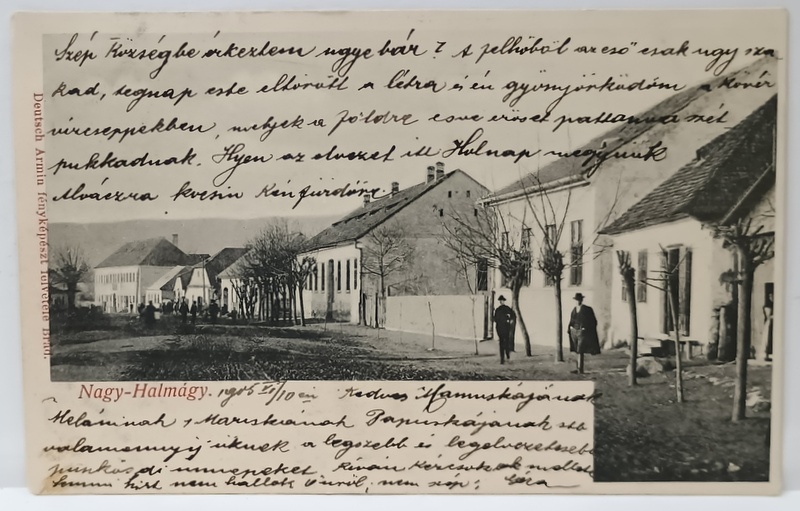 Szép Községbe érkeztem ugye bár? A felhőből az eső csak ugy sza
kad, tegnap este eltörött a létra és én gyönyörködöm a kövér
vízcseppekben, melyek a földre esve erőset pattanva szét
pukkadnak. Ilyen az élvezet itt Holnap megyünk
Alváczra kocsin Kénfürdőre.
Deutsch Armin fényképészt felvétele Brád.
Nagy-Halmágy. 1905 VI/10 én Kedves Mamuskájának
Meláninak, Mariskának Papuskájának szó
valamennyijüknek a legszebb és legélvezetesebb
pünkösdi ünnepeket kíván kézcsókok mellett
semmi hírt nem hallok Önről, nem szép: Géza